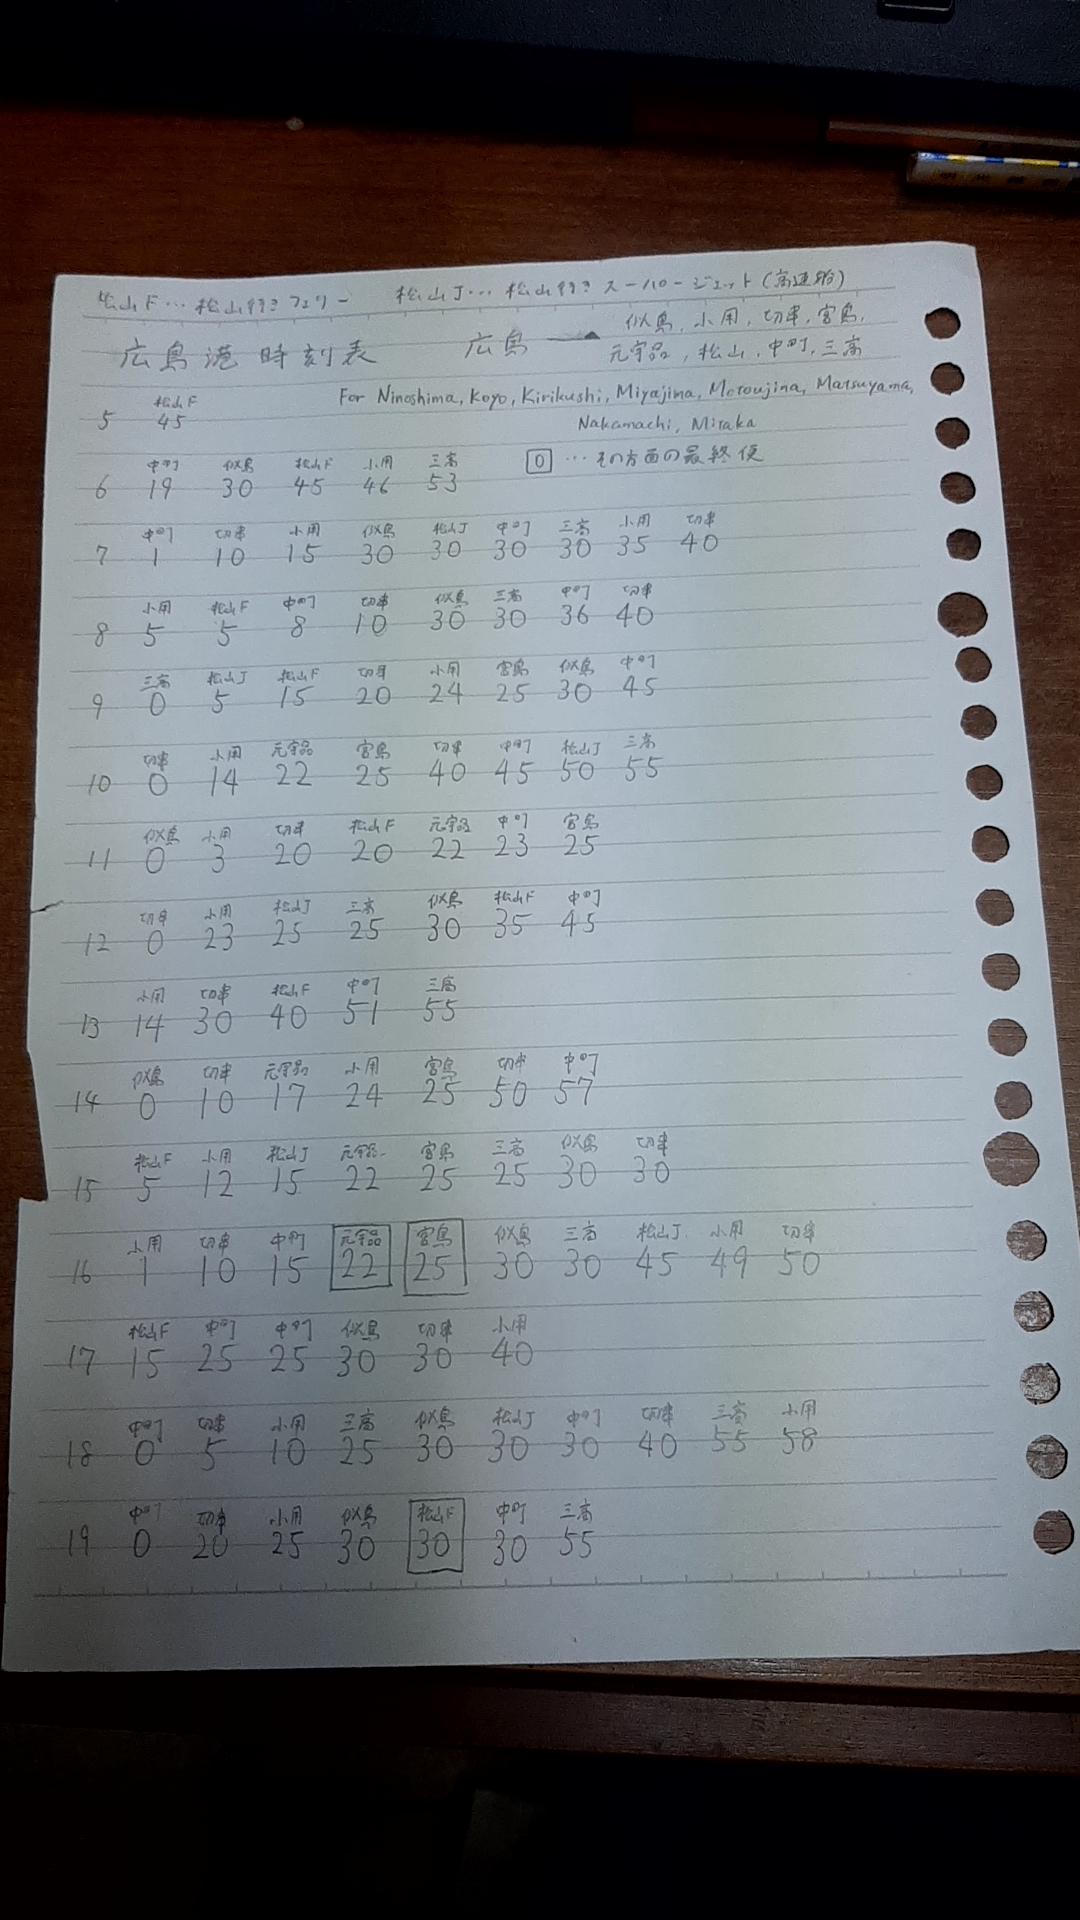 松山F… 松山行きフェリー 松山J… 松山行きスーパージェット(高速船)
広島港 時刻表 広島 → 似島, 小用, 切串, 宮島,
元宇品, 松山, 中町, 三高
For Ninoshima, Koyo, Kirikushi, Miyajima, Motoujina, Matsuyama,
Nakamachi, Mitaka
松山F
5 45
0 …その方面の最終便
中町 似島 松山F 小用 三高
6 19 30 45 46 53
中町 切串 小用 似島 松山J 中町 三高 小用 切串
7 1 10 15 30 30 30 30 35 40
小用 松山F 中町 切串 似島 三高 中町 切串
8 5 5 8 10 30 30 36 40
三高 松山J 松山F 切串 小用 宮島 似島 中町
9 0 5 15 20 24 25 30 45
切串 小用 元宇品 宮島 切串 中町 松山J 三高
10 0 14 22 25 40 45 50 55
似島 小用 切串 松山F 元宇品 中町 宮島
11 0 3 20 20 22 23 25
切串 小用 松山J 三高 似島 松山F 中町
12 0 23 25 25 30 35 45
小用 切串 松山F 中町 三高
13 14 30 40 51 55
似島 切串 元宇品 小用 宮島 切串 中町
14 0 10 17 24 25 50 57
松山F 小用 松山J 元宇品 宮島 三高 似島 切串
15 5 12 15 22 25 25 30 30
小用 切串 中町 元宇品 宮島 似島 三高 松山J 小用 切串
16 1 10 15 22 25 30 30 45 49 50
松山F 中町 中町 似島 切串 小用
17 15 25 25 30 30 40
中町 切串 小用 三高 似島 松山J 中町 切串 三高 小用
18 0 5 10 25 30 30 30 40 55 58
中町 切串 小用 似島 松山F 中町 三高
19 0 20 25 30 30 30 55